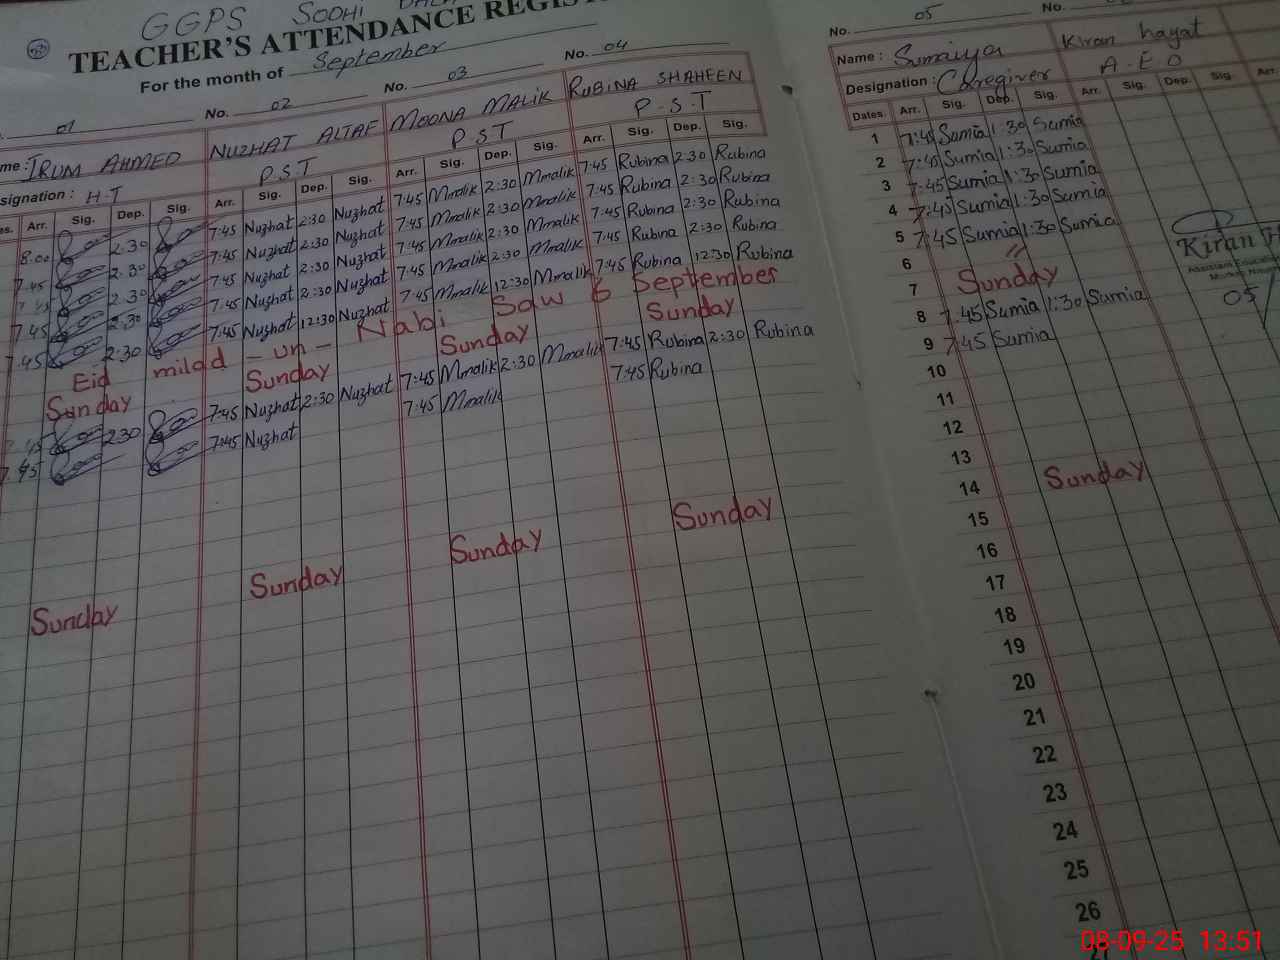 GGPS SODHI
TEACHER'S ATTENDANCE REGIS
For the month of September
01 No. 02 No. 03 No. 04
me : IRUM AHMED NUZHAT ALTAF MOONA MALIK RUBINA SHAHEEN
signation : H.T P.S.T P.S.T P.S.T
es. Arr. Sig. Dep. Sig. Arr. Sig. Dep. Sig. Arr. Sig. Dep. Sig. Arr. Sig. Dep. Sig.
8:00 2:30 7:45 Nuzhat 2:30 Nuzhat 7:45 Mmalik 2:30 Mmalik 7:45 Rubina 2:30 Rubina
7:45 2:30 7:45 Nuzhat 2:30 Nuzhat 7:45 Mmalik 2:30 Mmalik 7:45 Rubina 2:30 Rubina
7:45 2:30 7:45 Nuzhat 2:30 Nuzhat 7:45 Mmalik 2:30 Mmalik 7:45 Rubina 2:30 Rubina
7:45 2:30 7:45 Nuzhat 2:30 Nuzhat 7:45 Mmalik 2:30 Mmalik 7:45 Rubina 2:30 Rubina
7:45 2:30 7:45 Nuzhat 12:30 Nuzhat 7:45 Mmalik 12:30 Mmalik 7:45 Rubina 12:30 Rubina
Eid milad - un - Nabi Saw 6 September
Sunday Sunday Sunday Sunday
7:45 2:30 7:45 Nuzhat 2:30 Nuzhat 7:45 Mmalik 2:30 Mmalik 7:45 Rubina 2:30 Rubina
7:45 7:45 Nuzhat 7:45 Mmalik 7:45 Rubina
Sunday Sunday Sunday Sunday
No. 05 No.
Name : Sumaiya Kiran hayat
Designation : Caregiver A.E.O
Dates. Arr. Sig. Dep. Sig. Arr. Sig. Dep. Sig. Arr.
1 7:45 Sumia 1:30 Sumia
2 7:45 Sumia 1:30 Sumia
3 7:45 Sumia 1:30 Sumia
4 7:45 Sumia 1:30 Sumia
5 7:45 Sumia 1:30 Sumia
6 "
7 Sunday
8 7:45 Sumia 1:30 Sumia
9 7:45 Sumia
10
11
12
13
14 Sunday
15
16
17
18
19
20
21
22
23
24
25
26
27
Kiran H
05
08-09-25 13:51